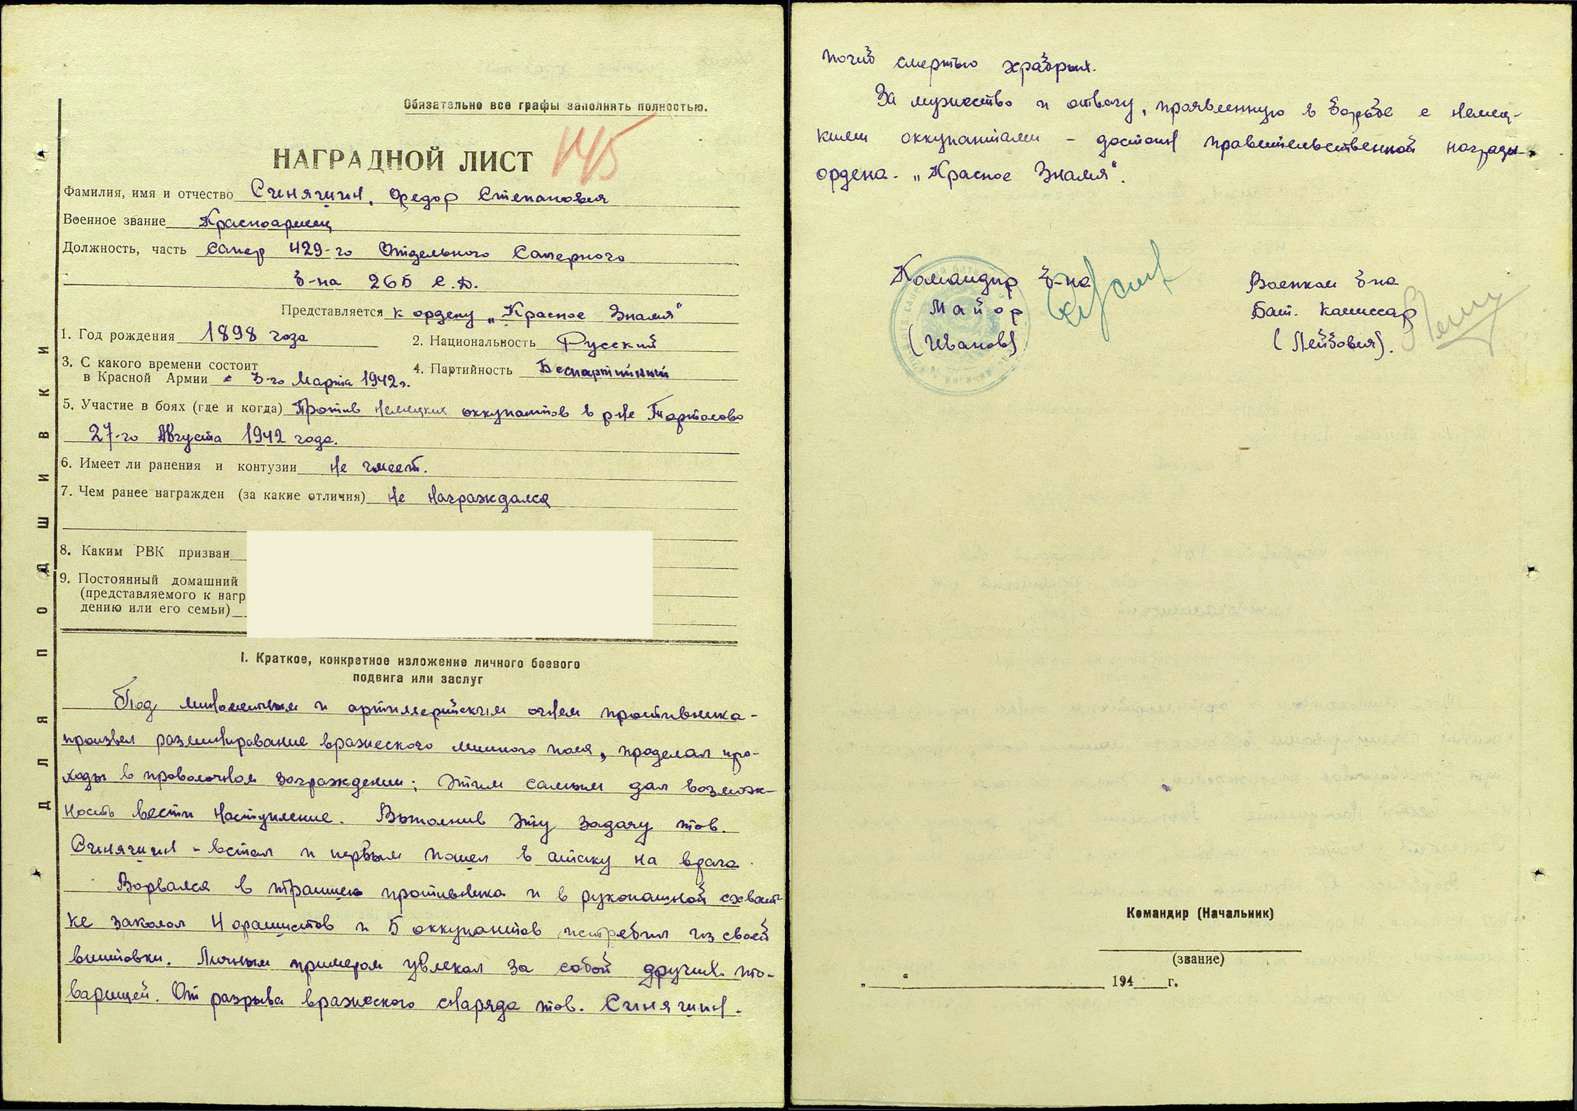 Обязательно все графы заполнять полностью.
НАГРАДНОЙ ЛИСТ 145
Фамилия, имя и отчество Синягин, Федор Степанович
Военное звание Красноармеец
Должность, часть сапер 429-го Отдельного Саперного
б-на 265 с.д.
Представляется к ордену „Красное Знамя"
1. Год рождения 1898 года
2. Национальность Русский
3. С какого времени состоит
в Красной Армии с 3-го Марта 1942 г.
4. Партийность Беспартийный
5. Участие в боях (где и когда) Против немецких оккупантов в р-не Тортолово
27-го Августа 1942 года.
6. Имеет ли ранения и контузии Не имеет.
7. Чем ранее награжден (за какие отличия) Не награждался
8. Каким РВК призван
9. Постоянный домашний
(представляемого к наг
дению или его семьи)
ДЛЯ ПОДШИВКИ
I. Краткое, конкретное изложение личного боевого
подвига или заслуг
Под минометным и артиллерийским огнем противника-
произвел разминирование вражеского минного поля, проделал про-
ходы в проволочном заграждении; этим самым дал возмож-
ность вести наступление. Выполнив эту задачу тов.
Синягин - встал и первым пошел в атаку на врага.
Ворвался в траншею противника и в рукопашной схват-
ке заколол 4 фашистов и 5 оккупантов истребил из своей
винтовки. Личным примером увлекал за собой других то-
варищей. От разрыва вражеского снаряда тов. Синягин.
погиб смертью храбрых.
За мужество и отвагу, проявленную в борьбе с немец-
кими оккупантами - достоин правительственной награды
ордена. „Красное Знамя".
Командир б-на
Майор
(Иванов)
Военком б-на
Бат. комиссар
(Лейбович).
Командир (Начальник)
(звание)
„ " 194 г.